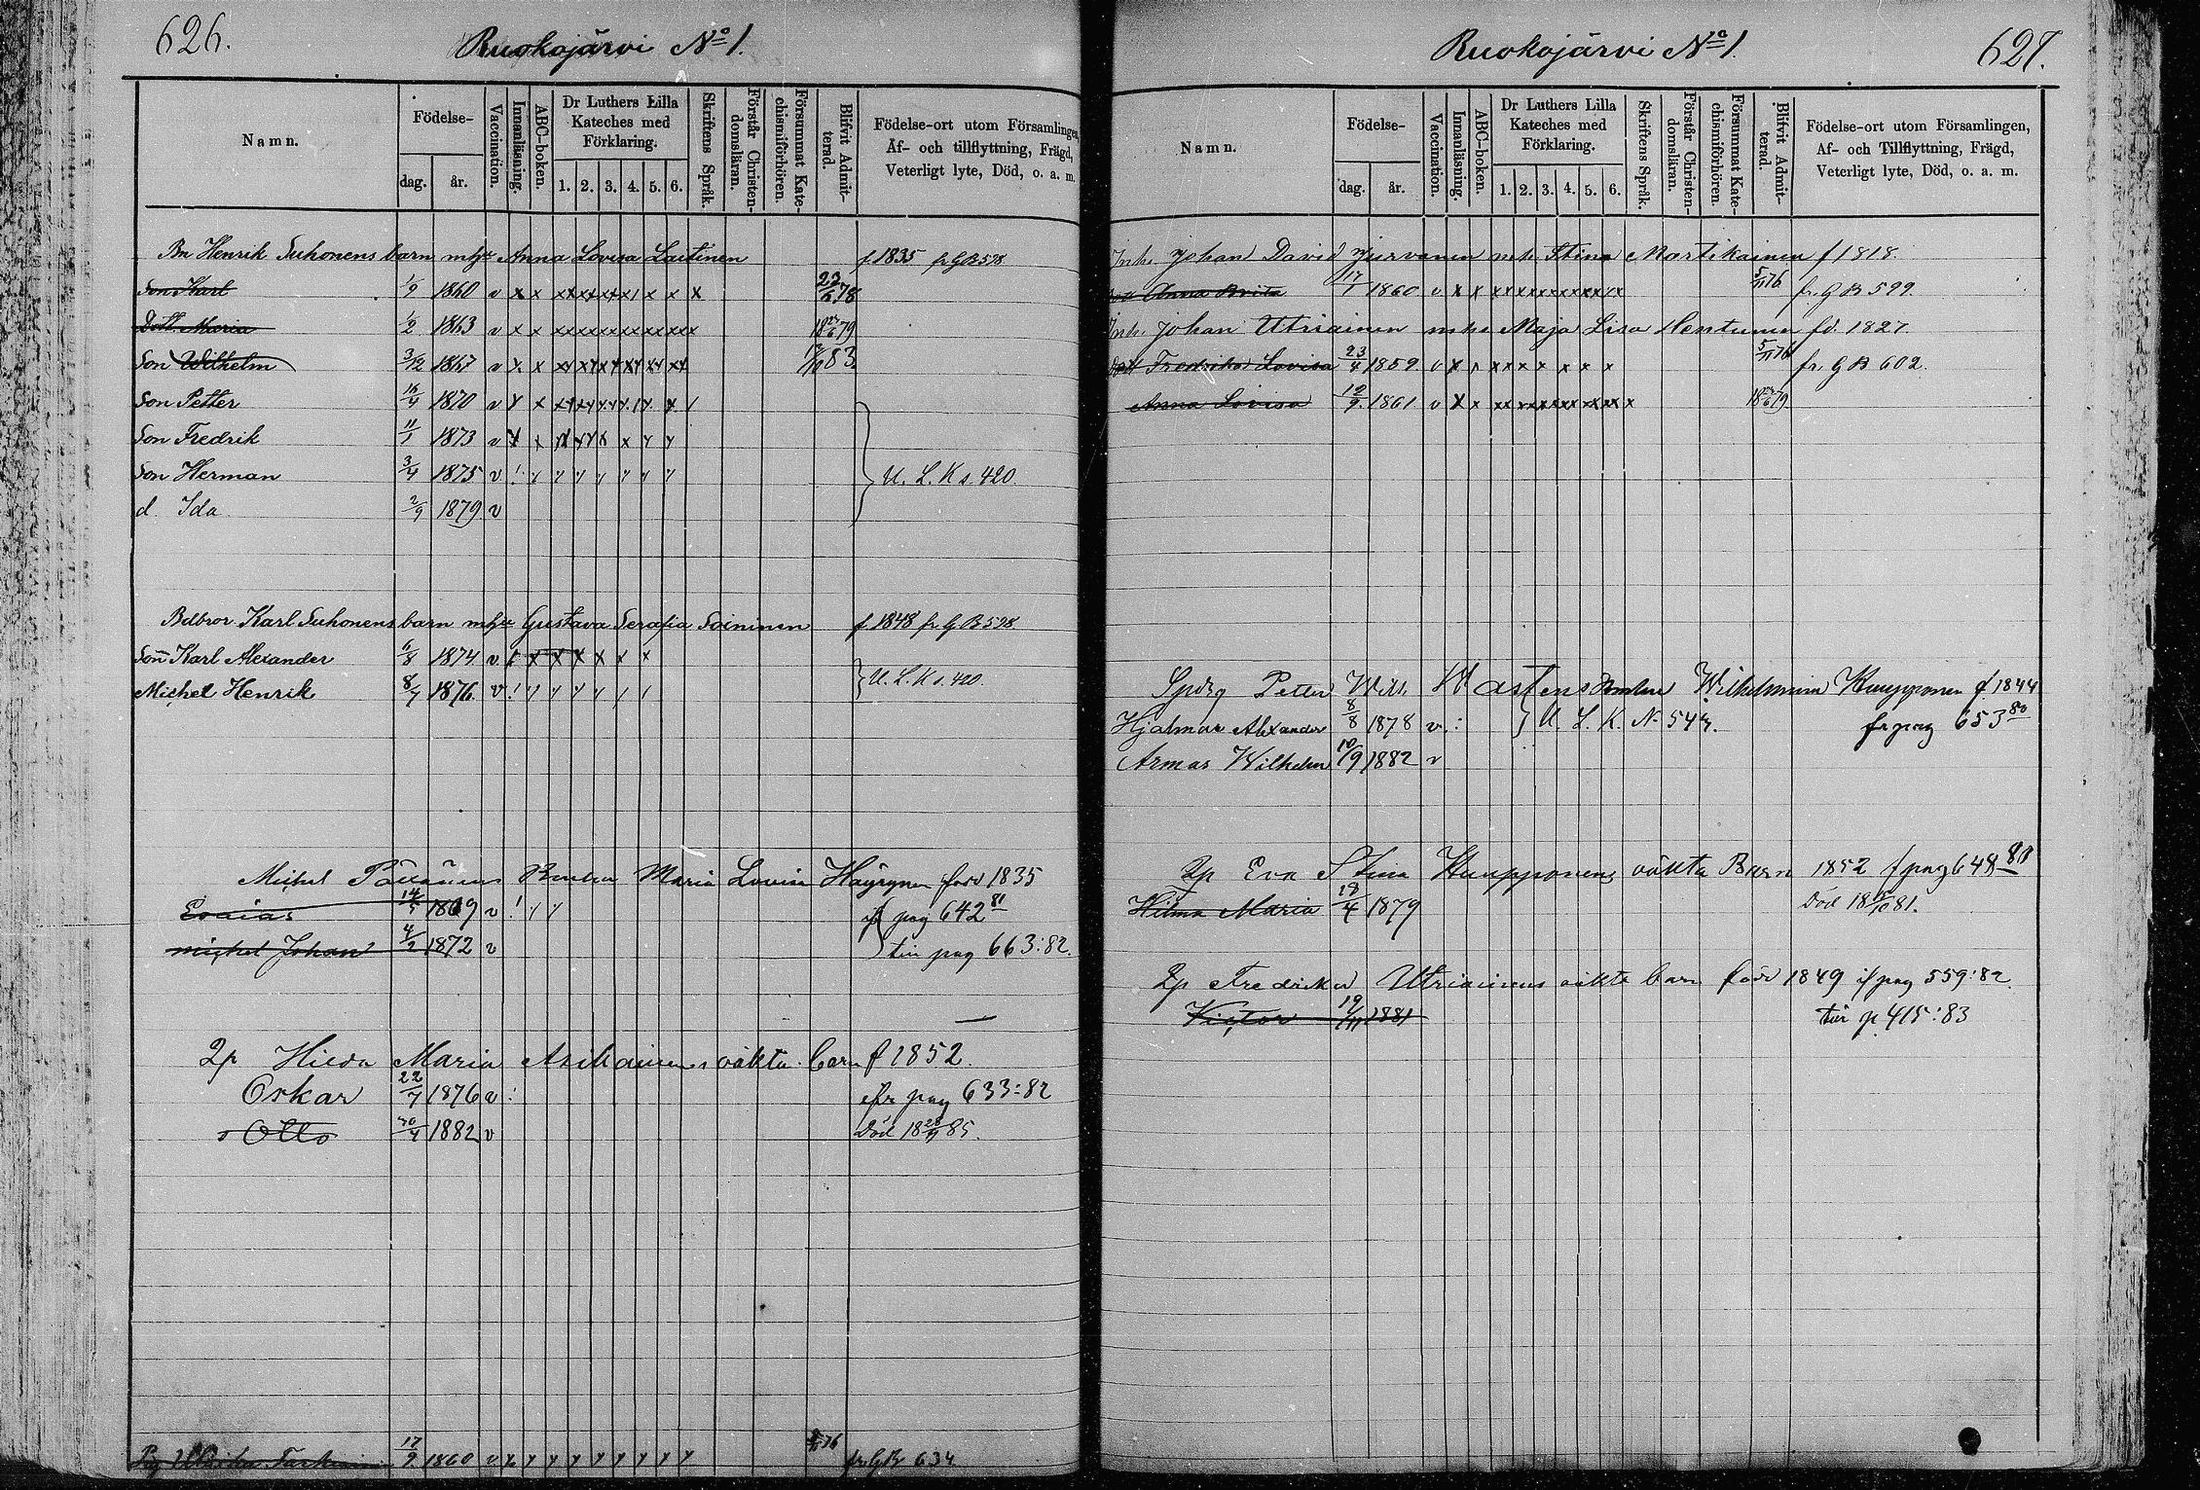 626.
Ruokojärvi No 1.
Namn.
Födelse-
dag.
år.
Vaccination.
Innanläsning.
ABC-boken.
Dr Luthers Lilla
Kateches med
Förklaring.
1. 2. 3. 4. 5. 6.
Skriftens Språk.
Förstår Christen-
domsläran.
Försummat Kate-
chismiförhören.
Blifvit Admit-
terad.
Födelse-ort utom Församlingen,
Af- och tillflyttning, Frägd,
Veterligt lyte, Död, o. a. m.
Bn Henrik Suhonens barn m hu Anna Lovisa Laitinen f. 1835 fr. G B 578
Son Karl 1/9 1860 v x x xx xx xx x1 x x x 78
Dott. Maria 1/2 1863 v x x xxxxxxxxxxxxx 79
Son Wilhelm 3/12 1867 v x x 83.
Son Petter 16/4 1870 v
Son Fredrik 11/1 1873 v
Son Herman 3/4 1875 v U. L. K s. 420.
d. Ida 2/9 1879 v
Bdbror Karl Suhonens barn m hu Gustava Serafia Soininen f. 1848 fr G B 598
Son Karl Alexander 6/8 1874 v x x x x x x
Michel Henrik 8/7 1876 v U. L. K s. 420.
Michel Barn Maria Lovisa Häyrynen född 1835
Esaias 14/5 1869 v if pag 642 81
Michel Johan 4/2 1872 v till pag 663:82.
Qp Hilda Maria Asikainens oäkta barn f 1852.
Oskar 22/7 1876 v fr pag 633:82
s Otto 30/4 1882 v Död 18 28/9 85.
17/9 1860 v x 76 fr. G B 634
627.
Ruokojärvi No 1.
Namn.
Födelse-
dag.
år.
Vaccination.
Innanläsning.
ABC-boken.
Dr Luthers Lilla
Kateches med
Förklaring.
1. 2. 3. 4. 5. 6.
Skriftens Språk.
Förstår Christen-
domsläran.
Försummat Kate-
chismiförhören.
Blifvit Admit-
terad.
Födelse-ort utom Församlingen,
Af- och Tillflyttning, Frägd,
Veterligt lyte, Död, o. a. m.
Inh. Johan David Jurvanen m h. Stina Martikainen f 1818.
Dott Anna Brita 17/1 1860 v x x 5/11 76 fr. G B 599.
Inh. Johan Utriainen m hu Maja Lisa Hentunen fd. 1827.
Dott Fredrika Lovisa 23/4 1859 v x x x x x x x x x 5/11 76 fr. G B 602.
Anna Lovisa 12/9 1861 v x x 79
Petter Wilh. Barn Wilhelmina Huupponen f. 1844
Hjalmar Alexander 8/8 1878 v U. L. K. N 547. fr pag 653 80
Armas Wilhelm 10/9 1882 v
Qp Eva Stina Huupponens oäkta Barn 1852 f pag 648 80
Hilma Maria 18/4 1879 Död 81.
Qp Fredrika Utriainens oäkta barn född 1849 if pag 559:82.
Victor 19/11 1881 till p 415:83